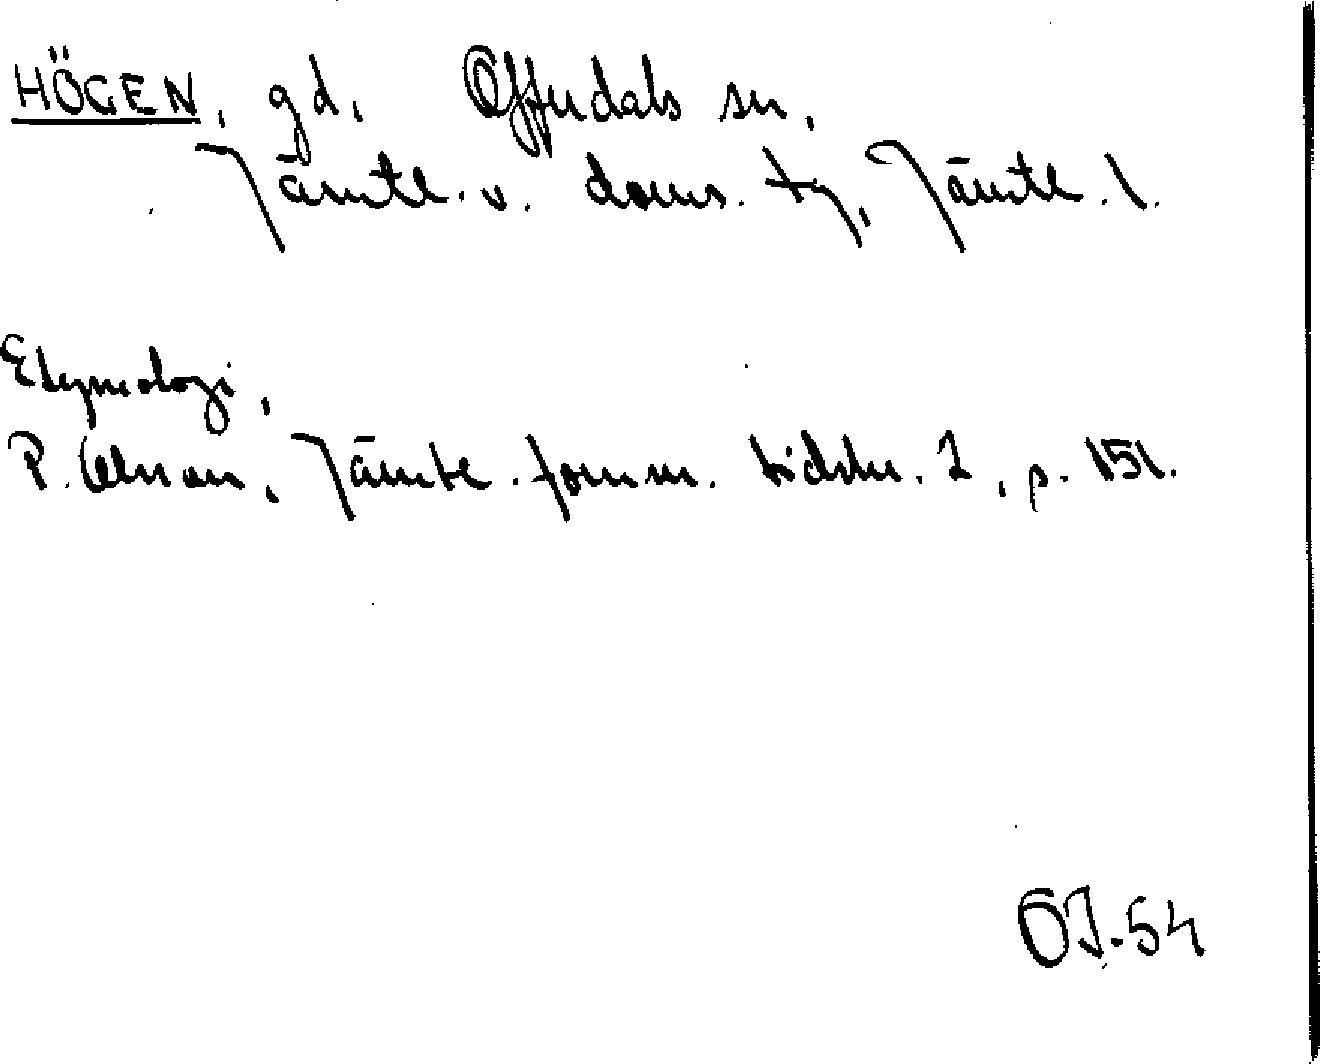 HÖGEN, gd, Offerdals sn,
Jämtl. v. doms. tg, Jämtl. l.
Etymologi,
P. Olsson, Jämtl. fornm. tidskr. 2, p. 151.
ÖJ.54